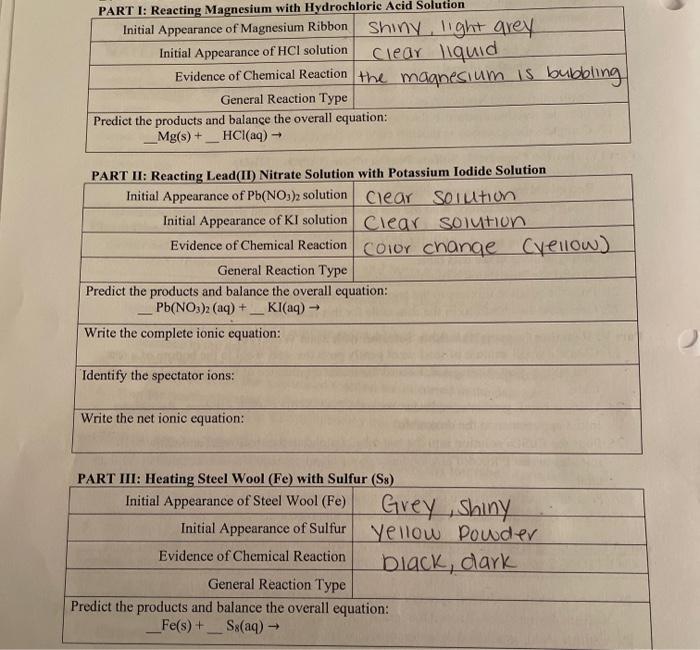 PART I: Reacting Magnesium with Hydrochloric Acid Solution
Initial Appearance of Magnesium Ribbon shiny, light grey
Initial Appearance of HCl solution clear liquid
Evidence of Chemical Reaction the magnesium is bubbling
General Reaction Type
Predict the products and balance the overall equation:
__Mg(s) + __ HCl(aq) →
PART II: Reacting Lead(II) Nitrate Solution with Potassium Iodide Solution
Initial Appearance of Pb(NO₃)₂ solution clear solution
Initial Appearance of KI solution clear solution
Evidence of Chemical Reaction color change (yellow)
General Reaction Type
Predict the products and balance the overall equation:
__ Pb(NO₃)₂ (aq) + __ KI(aq) →
Write the complete ionic equation:
Identify the spectator ions:
Write the net ionic equation:
PART III: Heating Steel Wool (Fe) with Sulfur (S₈)
Initial Appearance of Steel Wool (Fe) Grey, Shiny
Initial Appearance of Sulfur yellow powder
Evidence of Chemical Reaction black, dark
General Reaction Type
Predict the products and balance the overall equation:
__Fe(s) + __ S₈(aq) →